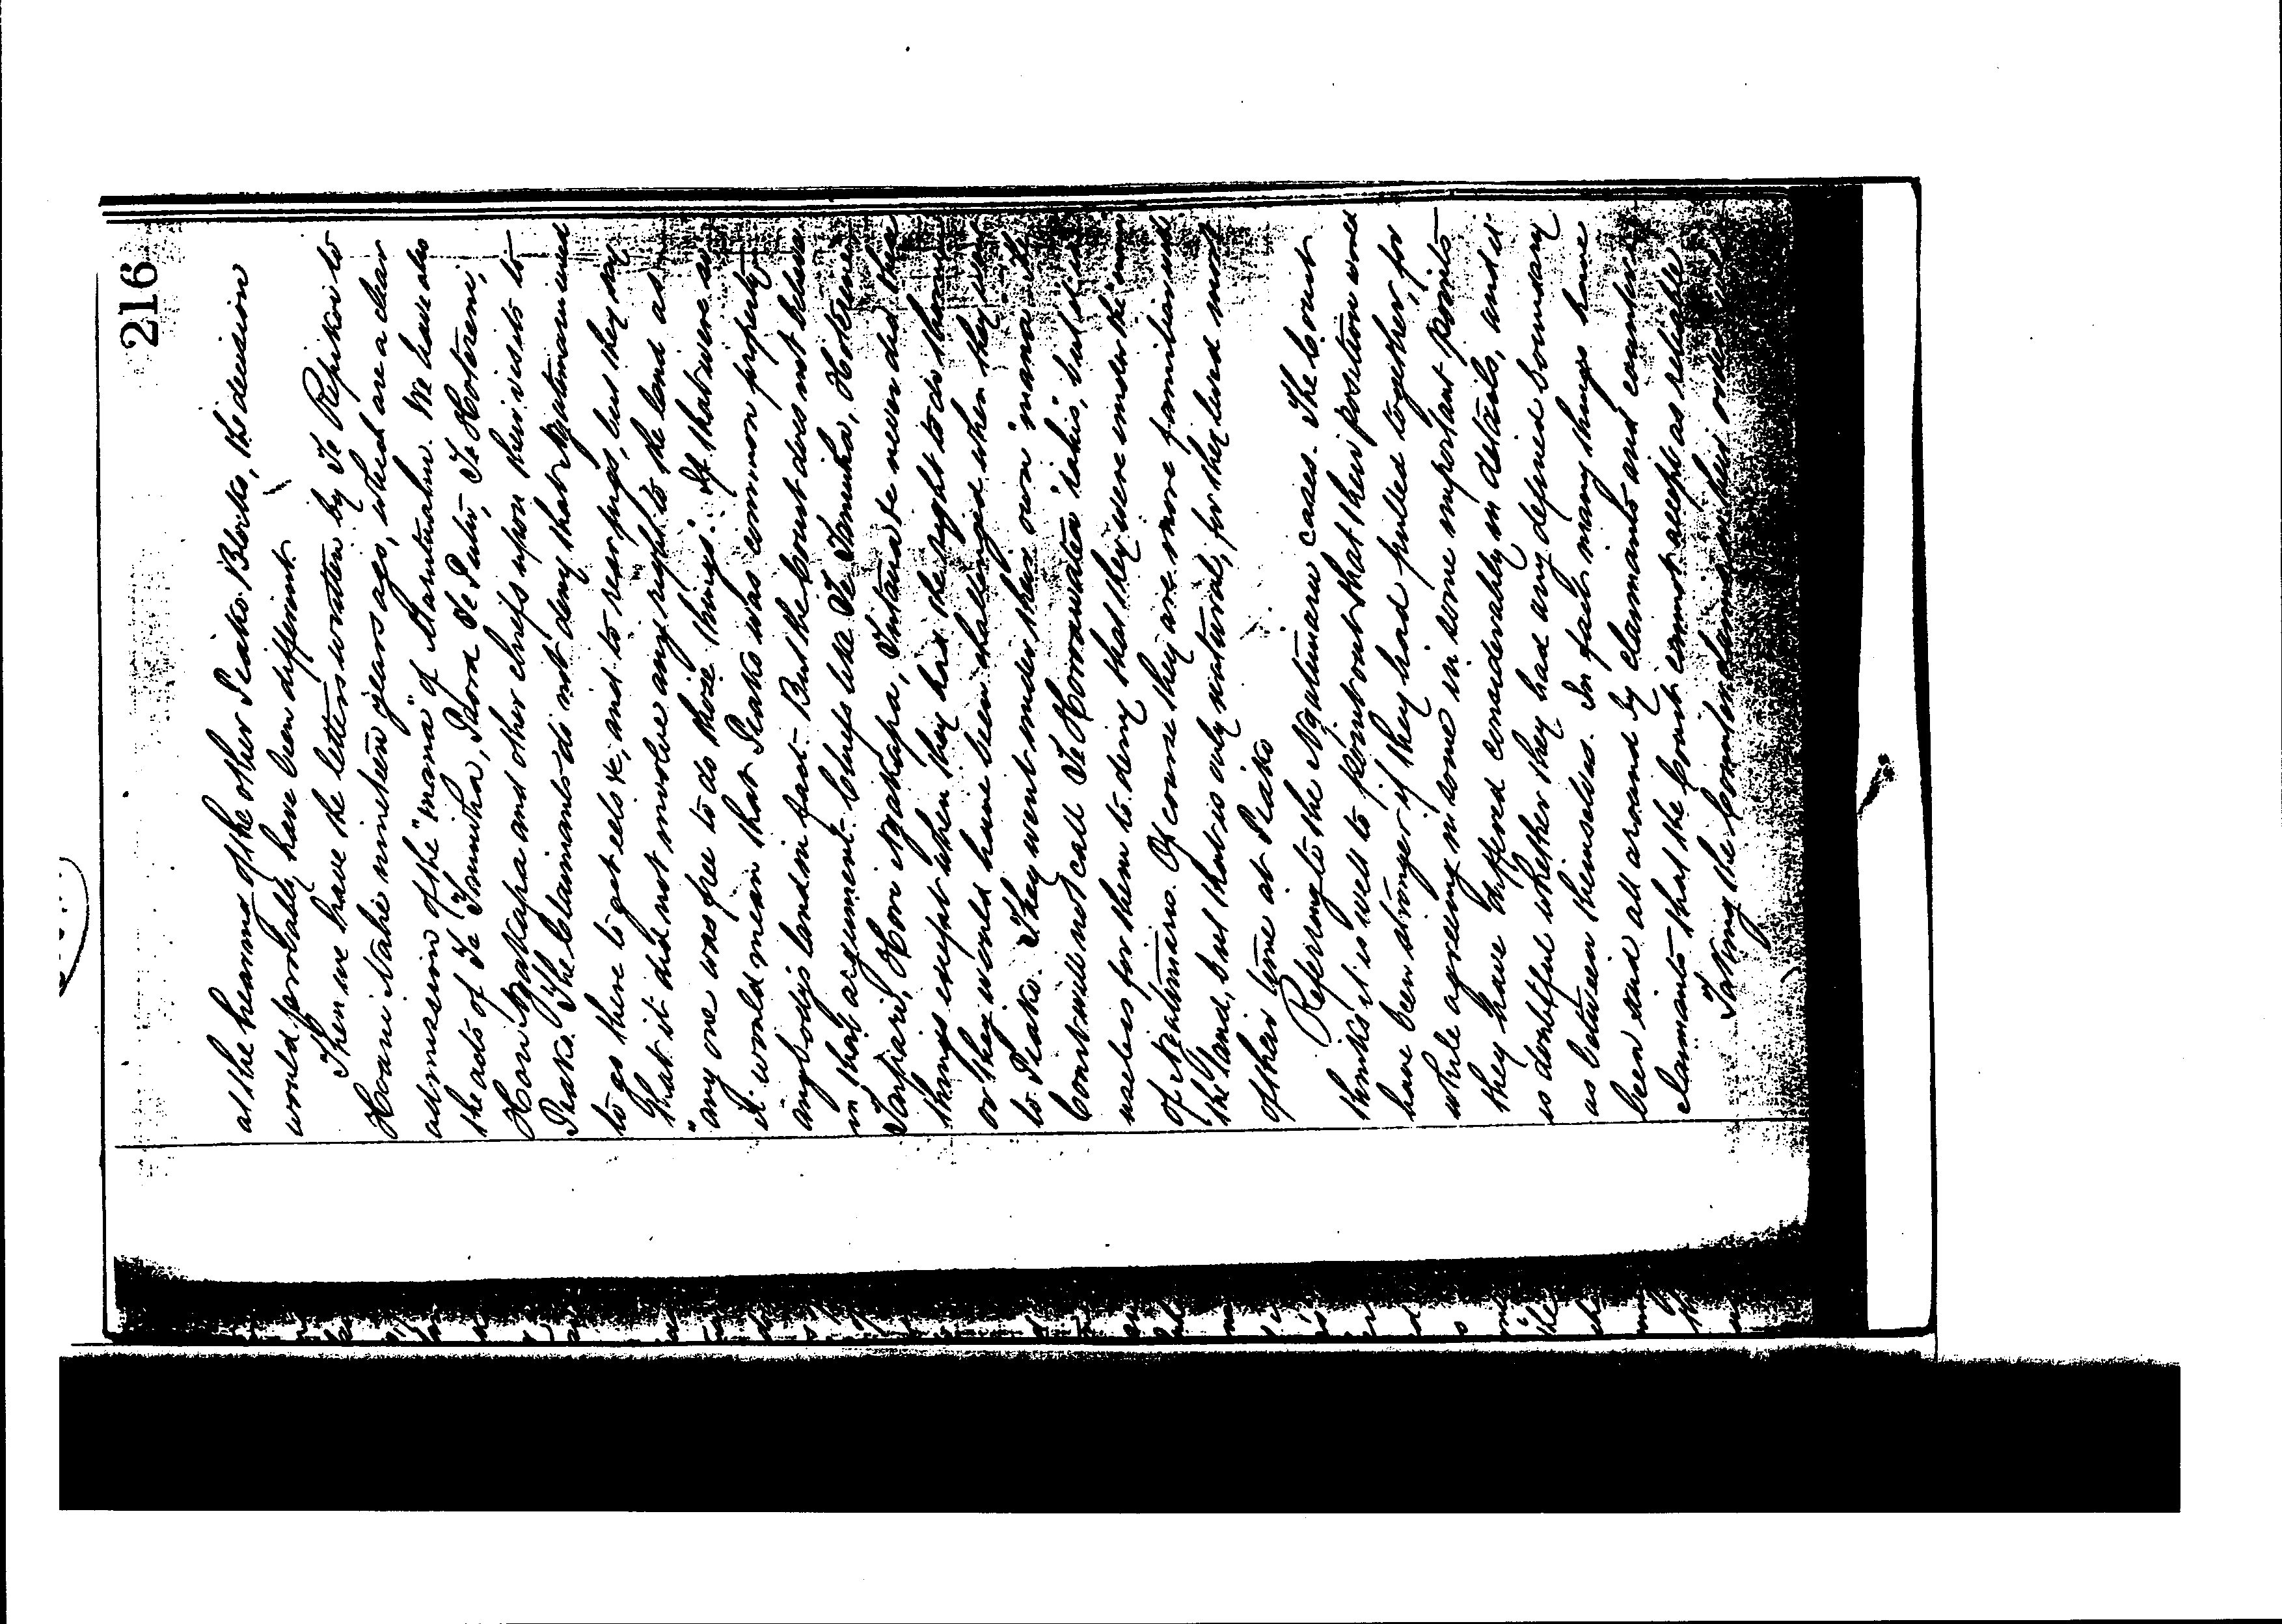 216
at the hearing of the other Piako Blocks, the decision
would probably have been different.
Then we have the letters written by Te Rapihana to
Hoani Nahe nineteen years ago, which are a clear
admission of the "mana" of Marutuahu. We have also
the acts of Te Tumuhu, Taipari, Te Hotereni,
Hori Ngakapa and other chiefs upon their visits to
Piako. The claimants do not deny that Ngatimaru used
to go there to get eels &c, and to rear pigs, but they say
that it did not involve any right to the land as
"any one was free to do those things". If that were so
it would mean that Piako was common property
anybody's land in fact - But the Court does not believe
in that argument - Chiefs like Te Hotereni
Taipari, Hori Ngakapa, never did these
things except when they had the right to do them
or they would have been challenged when they went
to Piako. They went under their own "mana" the
Court will not call Te Horowata "rahi", but it is
useless for them to deny that they were under the "mana"
of Ngatimaru. Of course they are more familiar with
the land, but that is only natural, for they lived most
of their time at Piako
Referring to the Ngatimaru cases. The Court
thinks it is well to point out that their position would
have been stronger if they had pulled together, for
while agreeing in some important points
they have differed considerably in details, and it
is doubtful whether they had any defined boundary
as between themselves. In fact many things have
been said all around by claimants and counter
claimants that the Court cannot accept as reliable
Taking the Counter claimants